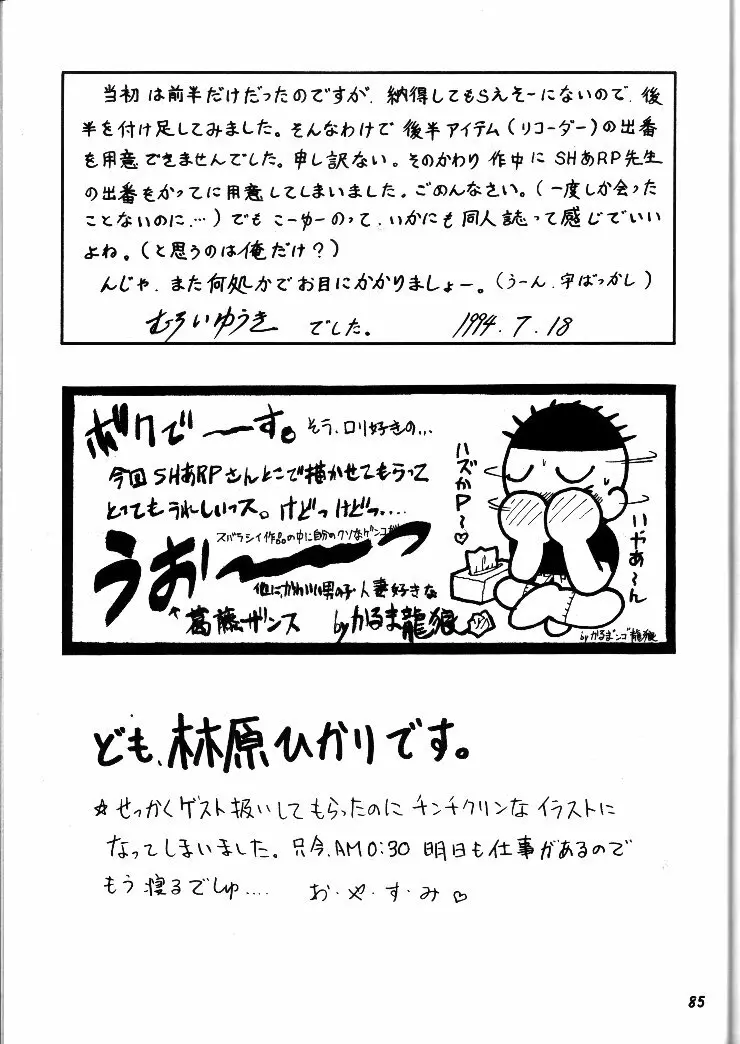 当初は前半だけだったのですが、納得してもらえそーにないので、後
半を付け足してみました。そんなわけで 後半アイテム(リコーダー)の出番
を用意できませんでした。申し訳ない。そのかわり 作中に SHあRP先生
の出番をかってに用意してしまいました。ごめんなさい。(一度しか会った
ことないのに…)でも こーゆーのって、いかにも同人誌って感じでいい
よね。(と思うのは俺だけ?)
んじゃ、また何処かでお目にかかりましょー。(うーん、字ばっかし)
むろいゆうき でした。 1994.7.18
ボクで〜〜す。そう、ロリ好きの…
今回SHあRPさんとこで描かせてもらって
とってもうれしいっス。けどっけどっ….
スバラシイ作品の中に自分のクソなゲンコ
うお〜〜〜っ
他に、かわいい男の子・人妻好きな
葛藤ザンス by かるま龍狼
ハズかP〜♡
いやあ〜ん
by かるまンゴ龍狼
ども、林原ひかりです。
☆せっかくゲスト扱いしてもらったのに チンチクリンな イラストに
なってしまいました。只今、AM0:30 明日も仕事があるので
もう寝るでしゅ…. お・や・す・み♡
85